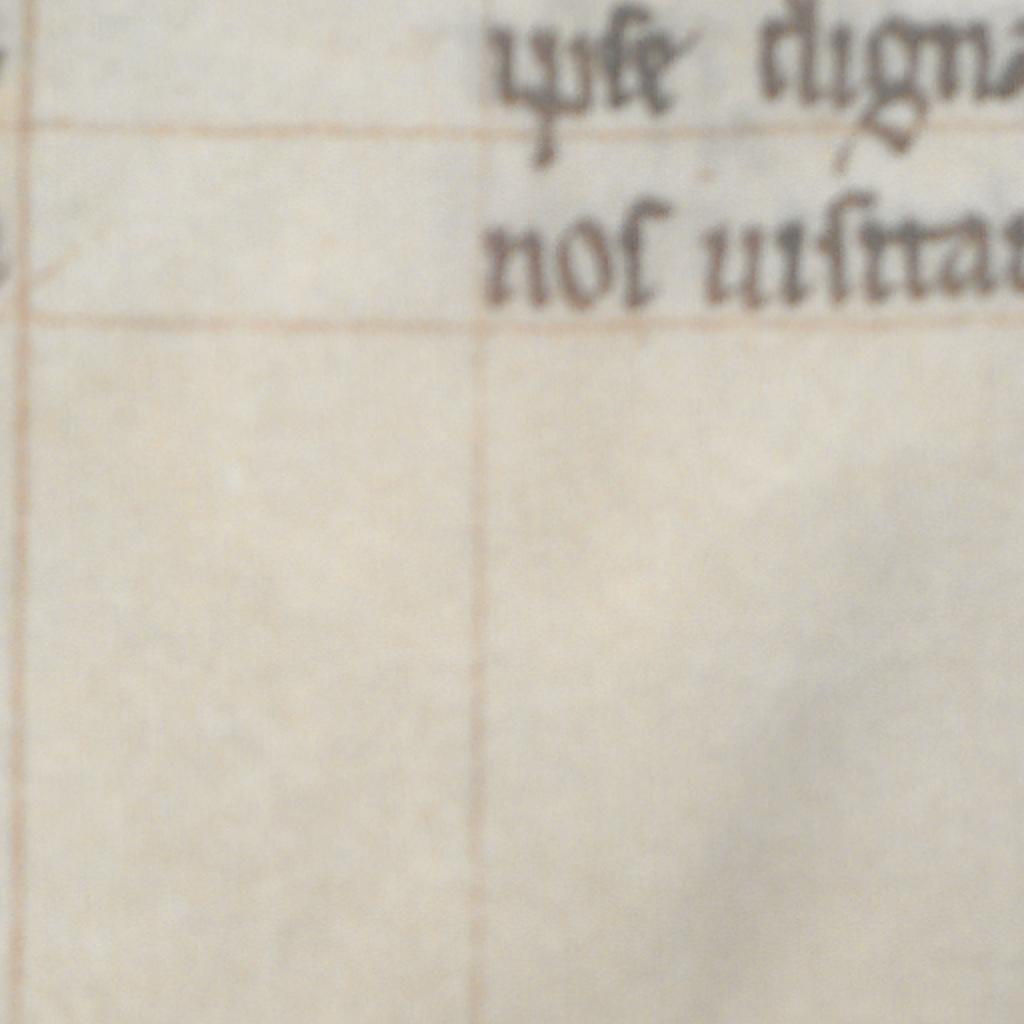 ipſe digna
noſ uiſitat